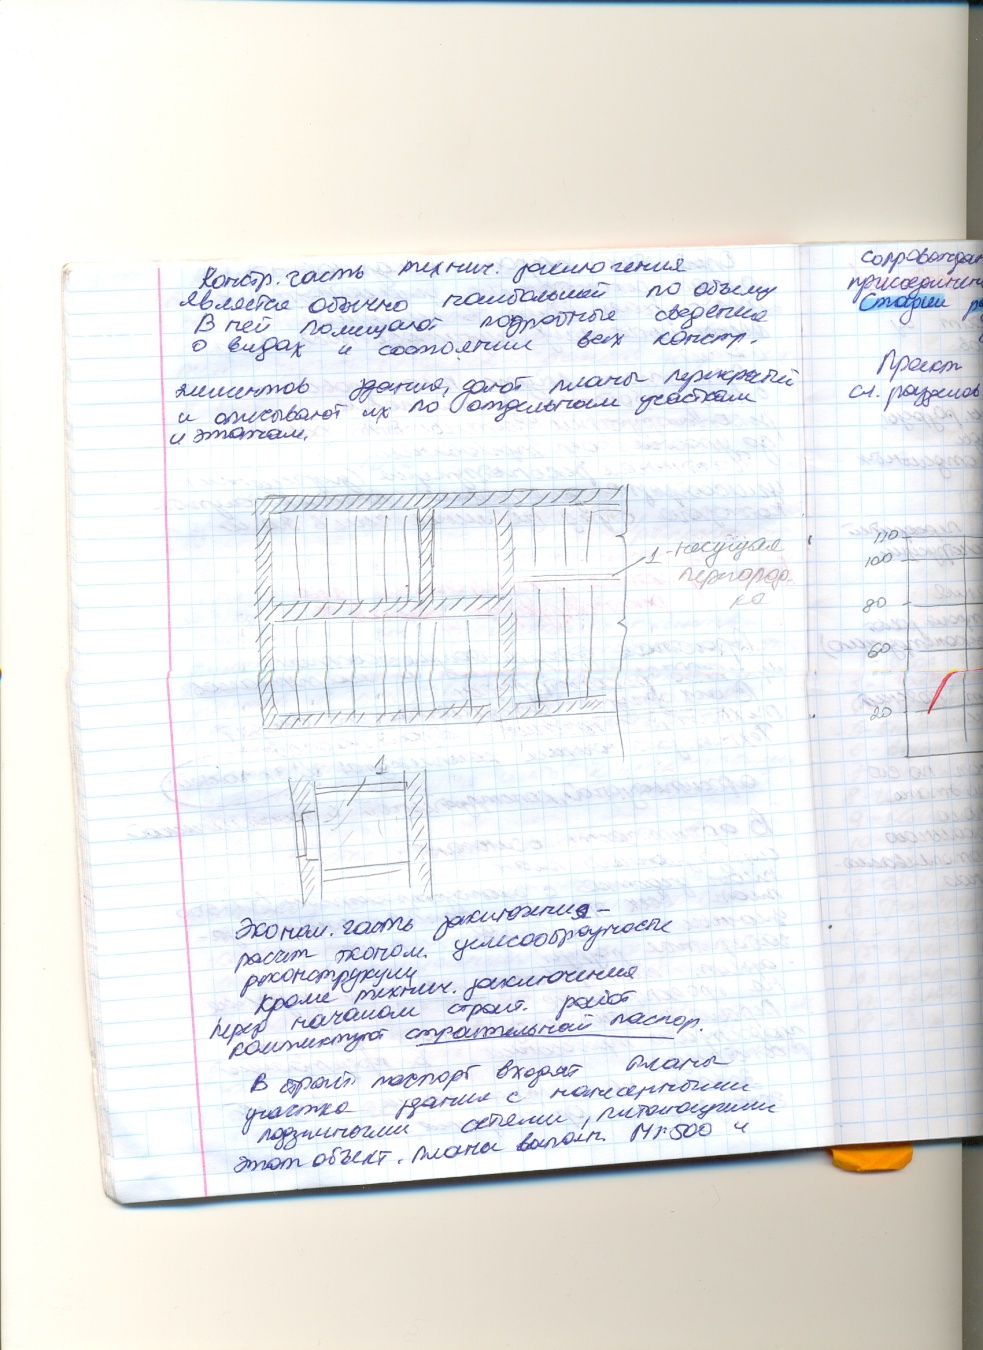 Констр. часть технич. заключения
является обычно наибольшей по объёму
В ней помещают подробные сведения
о видах и состоянии всех констр.
элементов здания, дают планы перекрытий
и описывают их по отдельным участкам
и этажам.
1-несущая
перегород-
ка
1
Эконом. часть заключения-
расчёт эконом. целесообразности
реконструкции
Кроме технич. заключения
перед началом строит. работ
комплектуют строительный паспор.
В строит паспорт входят планы
участка здания с нанесенными
подземными сетями, питающими
этот объект. Планы выполн. М1:500 и
сопровождаю
присоединени
Стадии р
Проект
сл. разделов
110
100
80
60
20